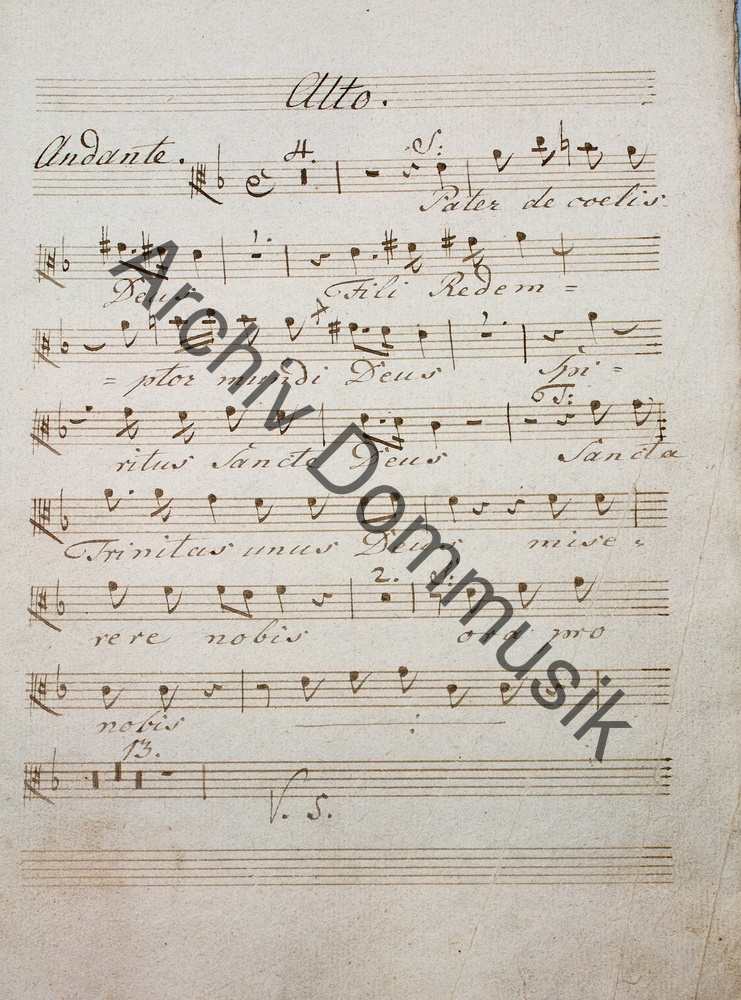 Alto.
Andante.
4.
S:
Pater de coelis
Deus Fili Redem=
=ptor mundi Deus Spi=
T:
ritus Sancte Deus Sancta
Trinitas unus Deus mise=
2. S:
rere nobis ora pro
nobis
13.
V. S.
Archiv Dommusik